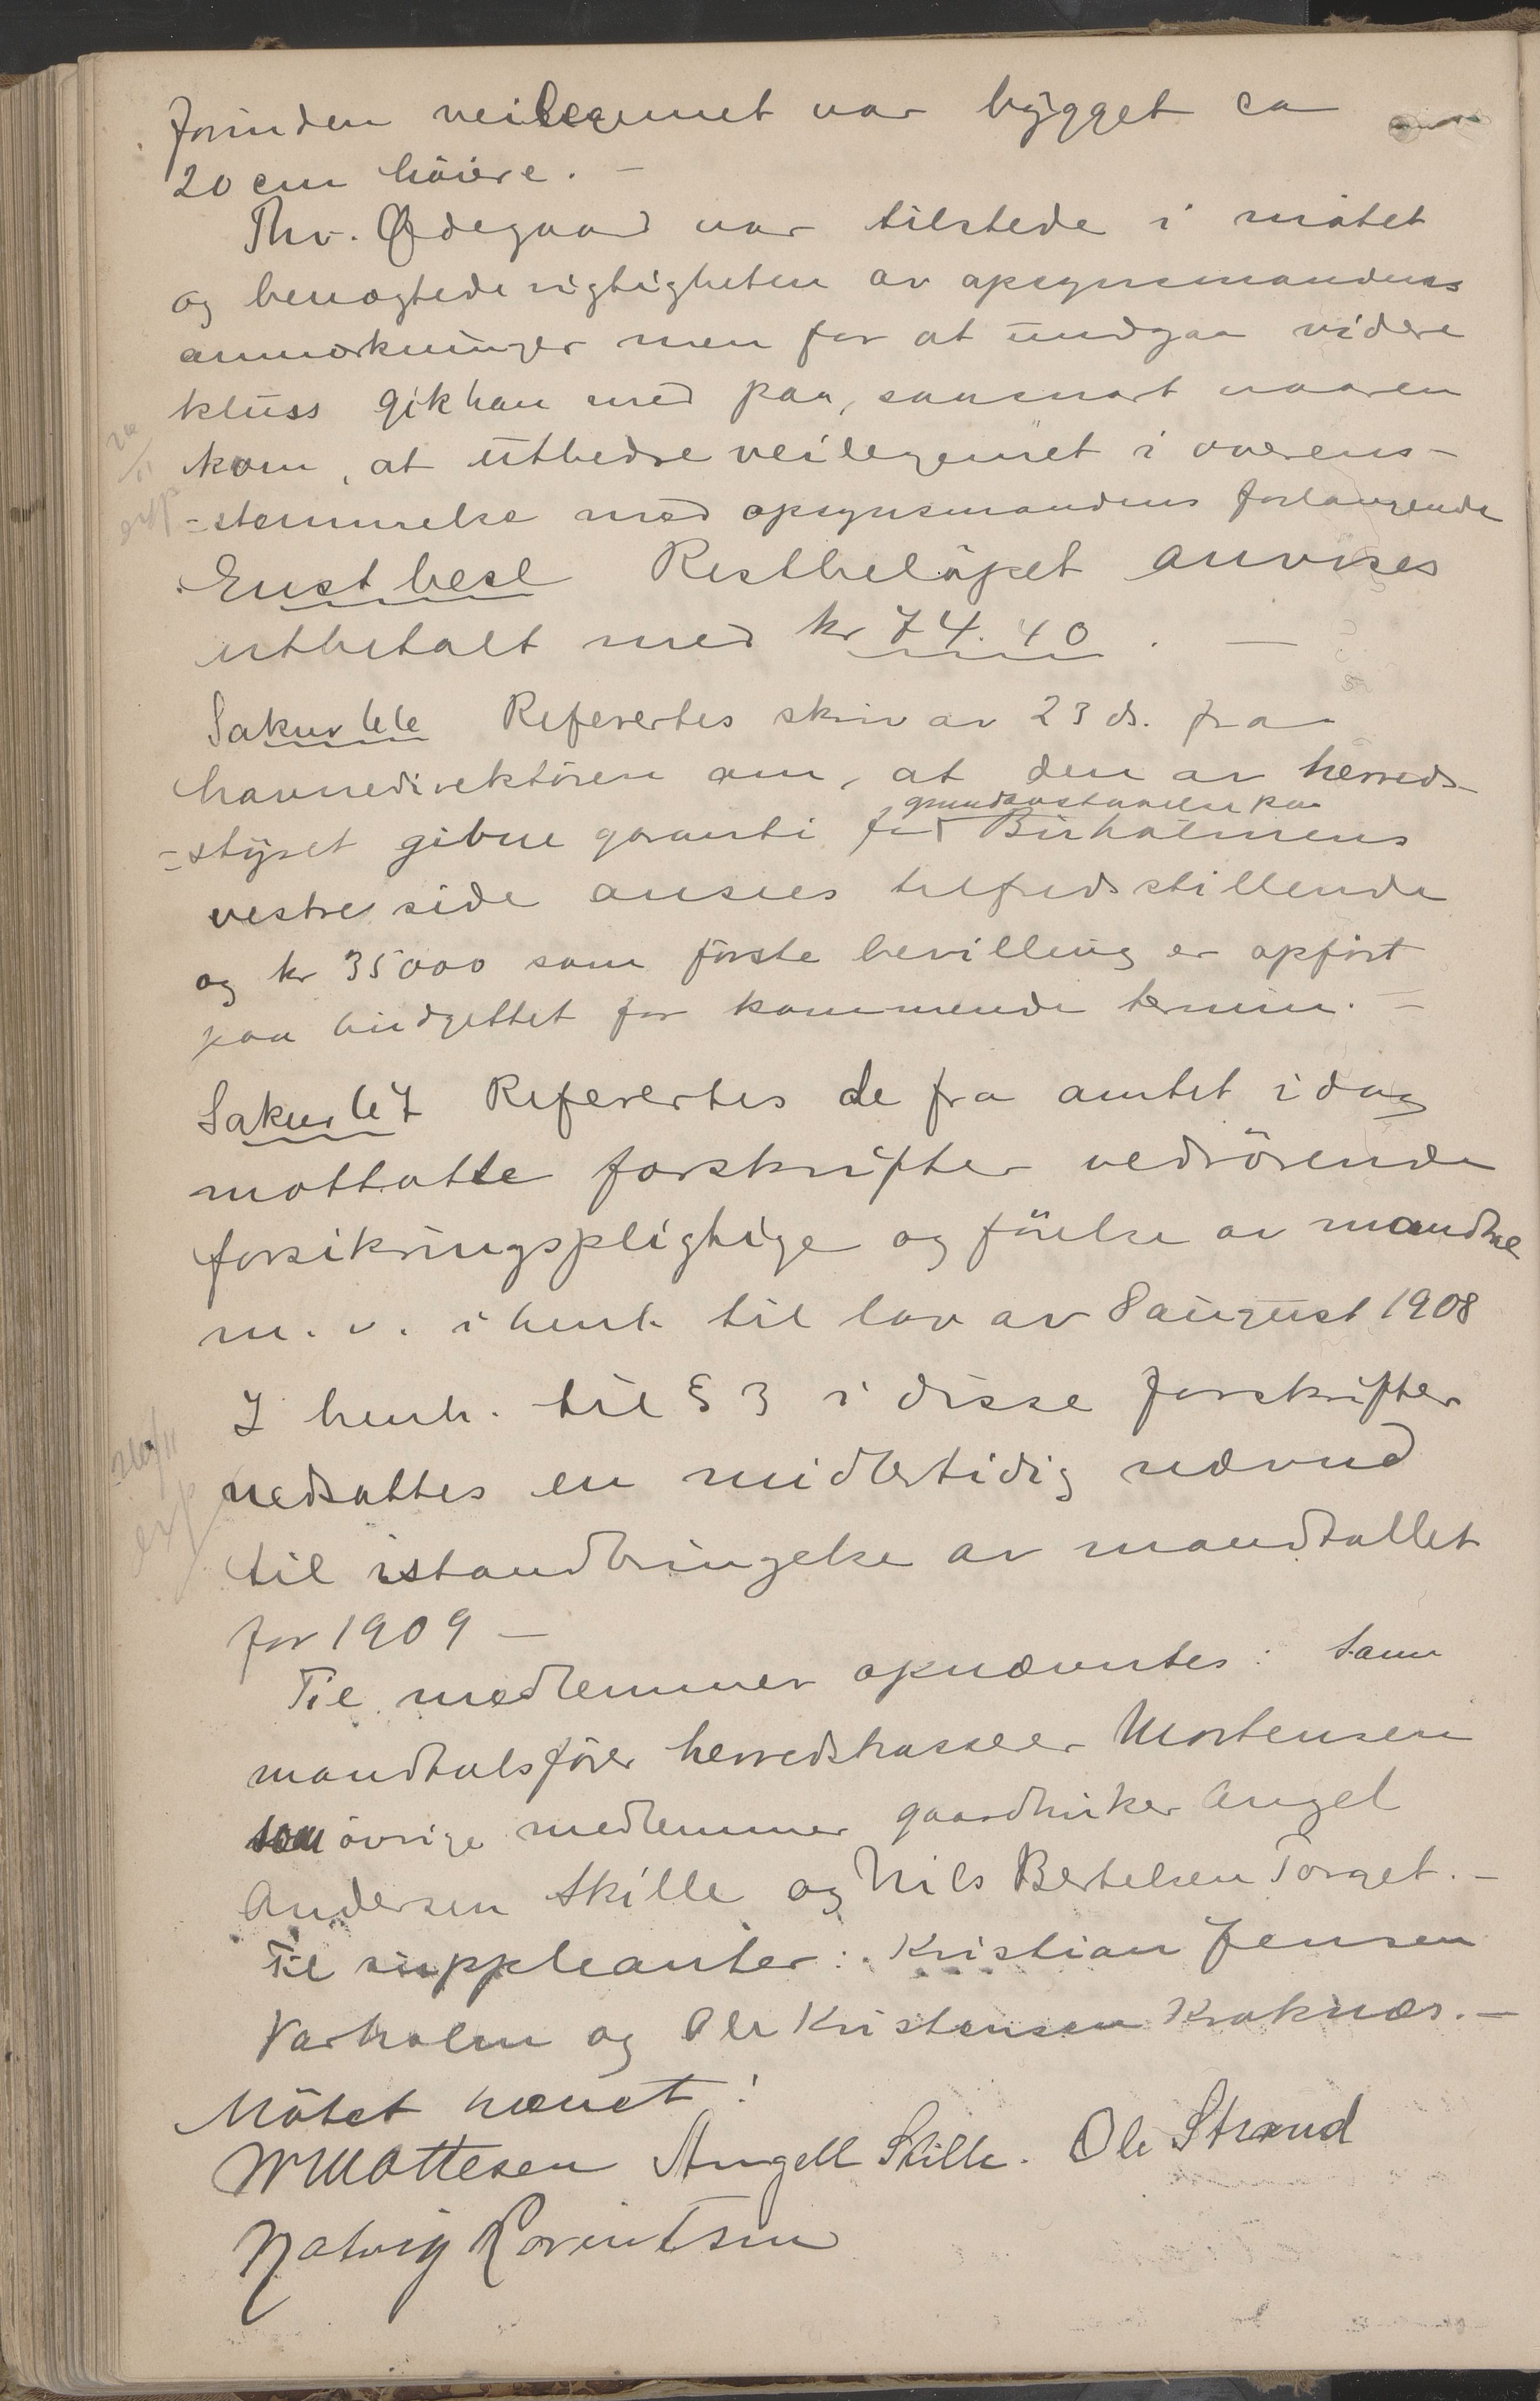 forinden veilegemet var bygget ca
20 cm höiere. -
Thv. Ødegaard var tilstede i mötet
og benægtede rigtigheten av opsynsmandens
anmærkninger men for at undgaa videre
kluss gik han med paa, saasnart vaaren
kom, at utbedre veilegemet i overens-
-stemmelse med opsynsmandens forlangende
Enst besl Restbelöpet anvises
utbetalt med kr 74.40. -
Saknr 66 Refertes skriv av 23 ds. fra
havnedirektören om, at den av herreds-
grundavstaaelse paa
-styret givne garanti for Burholmens
vestre side ansees tilfredsstillende
og kr 35000 som förste bevilling er opfört
paa budgettet for kommende termin. -
Saknr 67 Refertes de fra amtet idag
mottatte forskrifter vedrörende
forsikringspligtige og förelse av mandtal
m. v. i henh. til lov av 8 august 1908
I henh. til § 3 i disse forskrifter
nedsattes en midlertidig nævnd
til istandbringelse av mandtallet
for 1909 -
Til medlemmer opnævntes: som
mandtalsförer herredskasserer Mortensen
som övrige medlemmer gaardbruker Angel
Andersen Skille og Nils Bertelsen Torget. -
Til suppleanter: Kristian Jensen
Varholm og Ole Kristensen Kraknæs. -
Mötet hævet!
W Mottesen Angell Skille. Ole Strand
26/11
exp